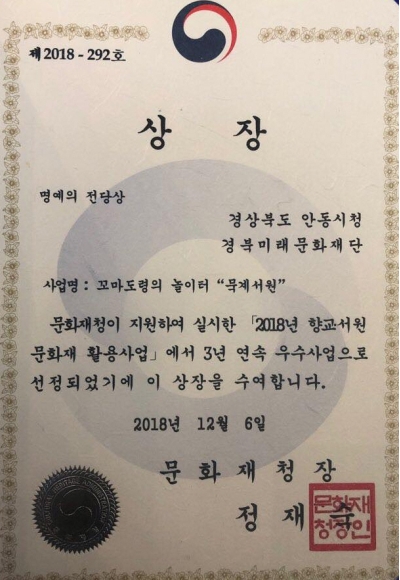 제2018 - 292호
상 장
명예의 전당상
경상북도 안동시청
경북미래문화재단
사업명 : 꼬마도령의 놀이터 “묵계서원”
문화재청이 지원하여 실시한 「2018년 향교서원
문화재 활용사업」에서 3년 연속 우수사업으로
선정되었기에 이 상장을 수여합니다.
2018년 12월 6일
문 화 재 청 장
정 재 숙
문화재
청장인